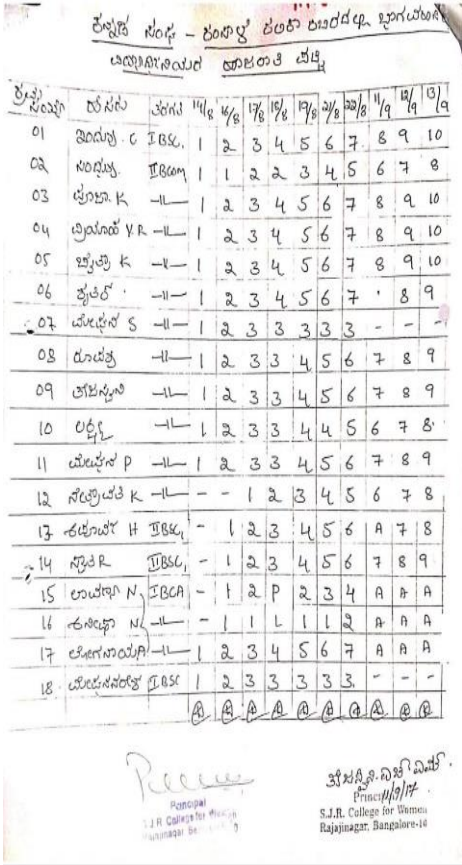 ಕನ್ನಡ ಸಂಘ – ಕಂಸಾಳೆ ಕಲಿಕಾ ಶಿಬಿರದಲ್ಲಿ
ವಿದ್ಯಾರ್ಥಿನಿಯರ ಹಾಜರಾತಿ ಪಟ್ಟಿ
ಕ್ರಮ ಸಂಖ್ಯೆ ಹೆಸರು ತರಗತಿ 14/8 16/8 17/8 18/8 19/8 21/8 22/8 11/9 12/9 13/9
01 ಇಂದುಶ್ರೀ. C I BSC, 1 2 3 4 5 6 7 8 9 10
02 II BCom 1 1 2 2 3 4 5 6 7 8
03 ಪೂಜಾ. K -11- 1 2 3 4 5 6 7 8 9 10
04 Y.R -11- 1 2 3 4 5 6 7 8 9 10
05 ಚೈತ್ರಾ K -11- 1 2 3 4 5 6 7 8 9 10
06 -11- 1 2 3 4 5 6 7 · 8 9
07 ಮೇಘನ S -11- 1 2 3 3 3 3 3 - - -
08 ರೂಪಶ್ರೀ -11- 1 2 3 3 4 5 6 7 8 9
09 ತೇಜಸ್ವಿನಿ -11- 1 2 3 3 4 5 6 7 8 9
10 ಲಕ್ಷ್ಮೀ -11- 1 2 3 3 4 4 5 6 7 8
11 ಮೇಘನ P -11- 1 2 3 3 4 5 6 7 8 9
12 ನೇತ್ರಾವತಿ K -11- - - 1 2 3 4 5 6 7 8
13 H II BSC, - 1 2 3 4 5 6 A 7 8
14 R II BSC, - 1 2 3 4 5 6 7 8 9
15 ಲಾವಣ್ಯ N I BCA - 1 2 P 2 3 4 A A A
16 N -11- - 1 1 L 1 1 2 A A A
17 A -11- 1 2 3 4 5 6 7 A A A
18. I BSC 1 2 3 3 3 3 3. - - -
Principal
S.J.R. College for Women
11/9/17
S.J.R. College for Women
Rajajinagar, Bangalore-10